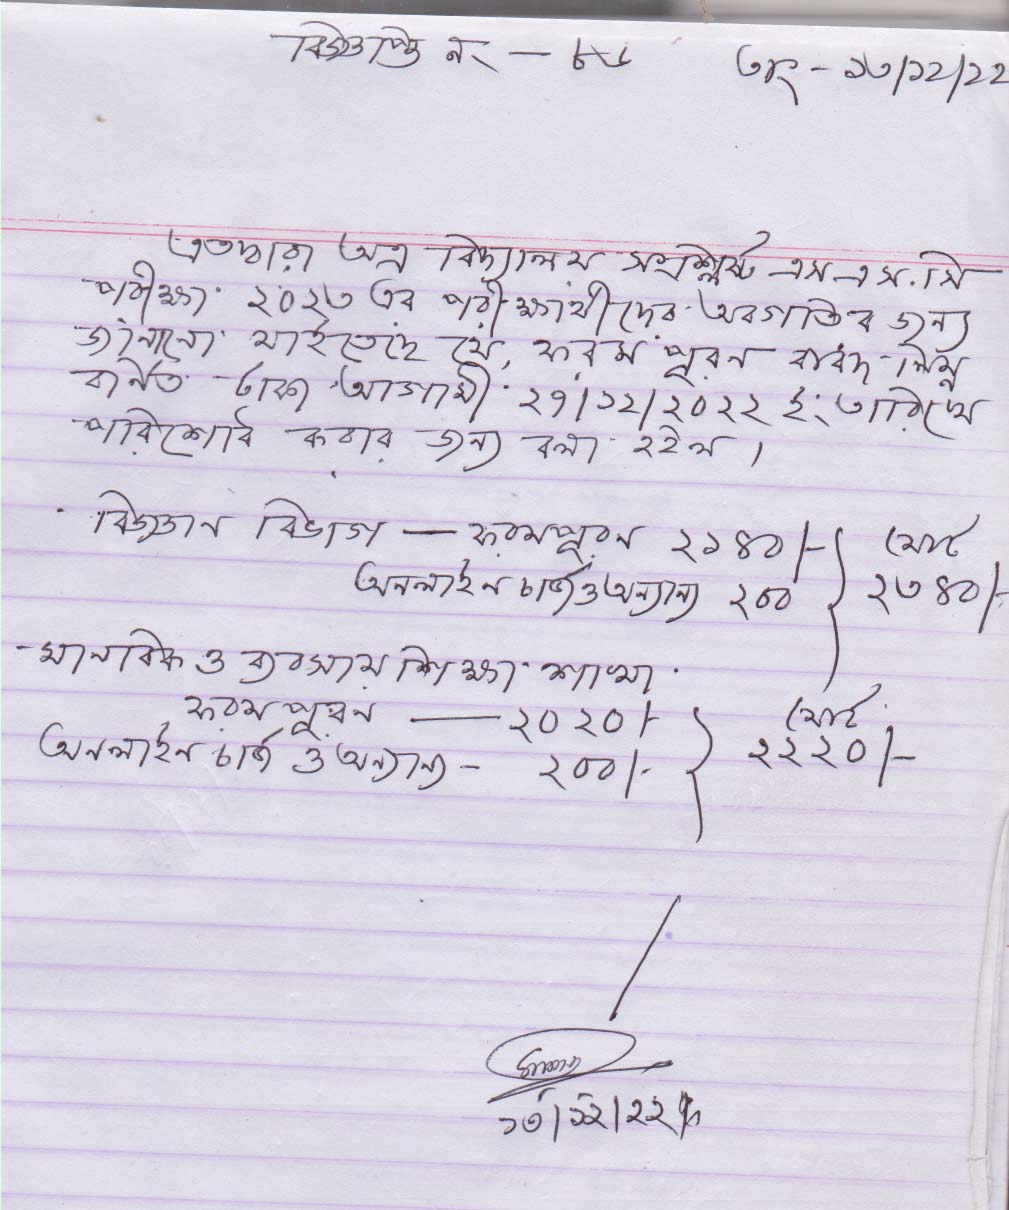 বিজ্ঞপ্তি নং – ৮৮ তাং – ১৩/১২/২২
এতদ্বারা অত্র বিদ্যালয় সংশ্লিষ্ট এস.এস.সি
পরীক্ষা ২০২৩ এর পরীক্ষার্থীদের অবগতির জন্য
জানানো যাইতেছে যে, ফরম পূরন বাবদ নিম্ন
বর্নিত টাকা আগামী ২৭/১২/২০২২ ইং তারিখে
পরিশোধ করার জন্য বলা হইল ।
বিজ্ঞান বিভাগ — ফরমপূরন ২১৪০/- } মোট
অনলাইন চার্জ ও অন্যান্য ২০০ ২৩৪০/-
মানবিক ও ব্যবসায় শিক্ষা শাখা
ফরমপূরন — ২০২০/- } মোট
অনলাইন চার্জ ও অন্যান্য – ২০০/- ২২২০/-
১৩/১২/২২